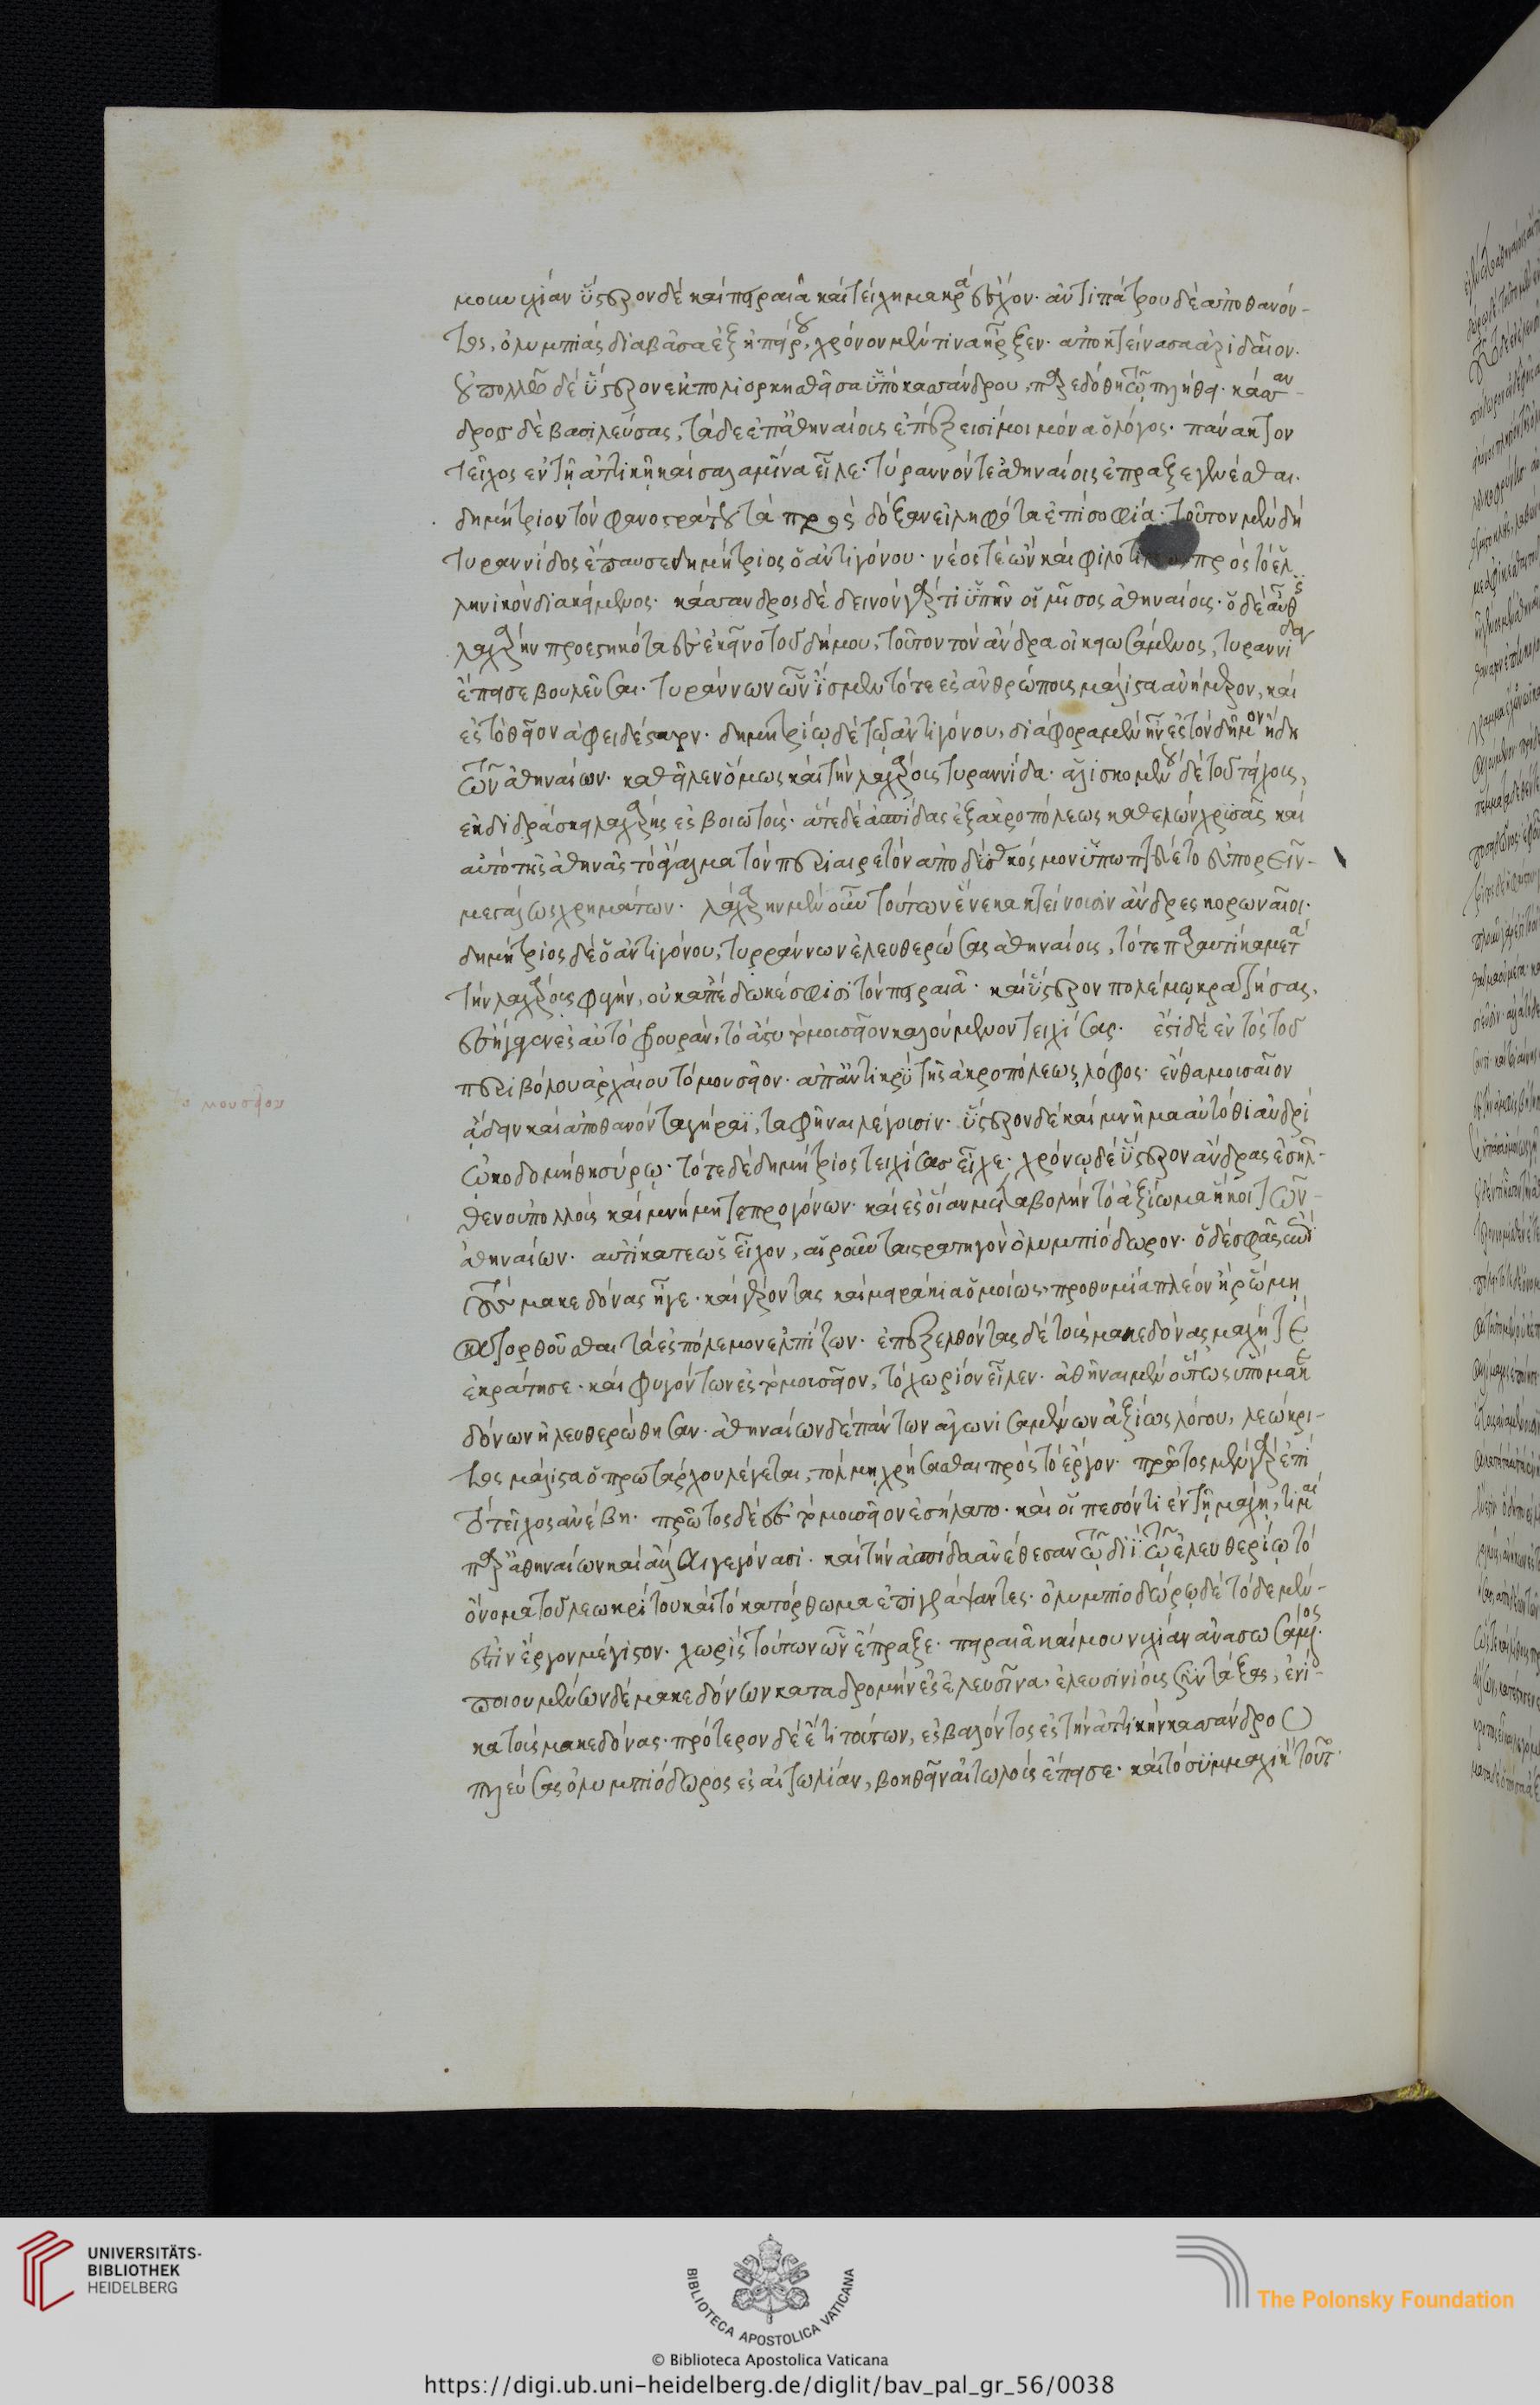 μουνυχίαν ὕστερον δὲ καὶ πειραιᾶ καὶ τείχη μακρὰ ἔσχον· ἀντιπάτρου δὲ ἀποθανόν-
τος, ὀλυμπιὰς διαβᾶσα ἐξ ἠπείρου, χρόνον μὲν τινα ἦρξεν· ἀποκτείνασα ἀριδαῖον·
οὐ πολλῶ δὲ ὕστερον ἐκπολιορκηθεῖσα ὑπὸ κασσάνδρου, παρεδόθη τῶ πλήθει· κάσσαν-
δρος δὲ βασιλεύσας, τὰ δὲ ἐπ' ἀθηναίοις ἐπέξεισί μοι μόνα ὁ λόγος· πάνακτον
τεῖχος ἐν τῇ ἀττικῇ καὶ σαλαμῖνα εἷλε· τύραννόν τε ἀθηναίοις ἔπραξε γενέσθαι·
δημήτριον τὸν φανοστράτου τὰ πρὸς δόξαν εἰληφότα ἐπὶ σοφία· τοῦτον μὲν δὴ
τυραννίδος ἔπαυσε δημήτριος ὁ ἀντιγόνου· νέος τε ὢν καὶ πρὸς τὸ ἑλ-
ληνικὸν διακείμενος· κάσσανδρος δὲ δεινὸν γάρ τι ὑπῆν οἱ μῖσος ἀθηναίοις· ὁ δὲ αὖθις
λαχάρην προεστηκότα ἐς ἐκεῖνο τοῦ δήμου, τοῦτον τὸν ἄνδρα οἰκειωσάμενος, τυραννίδα
ἔπεισε βουλεῦσαι· τυράννων ὧν ἴσμεν τότε ἐς ἀνθρώπους μάλιστα ἀνήμερον, καὶ
ἐς τὸ θεῖον ἀφειδέστατον· δημητρίῳ δὲ τῷ ἀντιγόνου, διάφορα μὲν ἦν ἐς τὸν δῆμον ἤδη
τῶν ἀθηναίων· καθεῖλεν ὅμως καὶ τὴν λαχάρους τυραννίδα· ἁλισκομένου δὲ τοῦ τείχους,
ἐκδιδράσκει λαχάρης ἐς βοιωτούς· ἅτε δὲ ἀσπίδας ἐξ ἀκροπόλεως καθελὼν χρυσᾶς καὶ
αὐτὸ τῆς ἀθηνᾶς τὸ ἄγαλμα τὸν περιαιρετὸν ἀποδύσας κόσμον ὑπωπτεύετο εὐπορεῖν-
μεγάλως χρημάτων· λαχάρην μὲν οὖν τούτων ἕνεκα κτείνουσιν ἄνδρες κορωναῖοι·
δημήτριος δὲ ὁ ἀντιγόνου, τυρράννων ἐλευθερώσας ἀθηναίους, τότε παραυτίκα μετὰ
τὴν λαχάρους φυγήν, οὐκ ἀπέδωκέ σφισι τὸν πειραιᾶ· καὶ ὕστερον πολέμῳ κρατήσας,
ἐσήγαγεν ἐς αὐτὸ φρουράν, τὸ ἄστυ τὸ μουσεῖον καλούμενον τειχίσας· ἔστι δὲ ἐντὸς τοῦ
περιβόλου ἀρχαίου τὸ μουσεῖον· ἀπαντικρὺ τῆς ἀκροπόλεως λόφος· ἔνθα μουσαῖον
ᾄδειν καὶ ἀποθανόντα γήραϊ, ταφῆναι λέγουσιν· ὕστερον δὲ καὶ μνῆμα αὐτόθι ἀνδρὶ
ὠκοδομήθη σύρῳ· τότε δὲ δημήτριος τειχίσας εἶχε· χρόνῳ δὲ ὕστερον ἄνδρας ἐσῆλ-
θεν οὐ πολλοὺς καὶ μνήμη τε προγόνων· καὶ ἐς οἵαν μεταβολὴν τὸ ἀξίωμα ἥκοι τῶν-
ἀθηναίων· αὐτίκα τε ὡς εἶχον, αἱροῦνται στρατηγὸν ὀλυμπιόδωρον· ὁ δέ σφᾶς ἐπὶ
τοὺς μακεδόνας ἦγε· καὶ γέροντας καὶ μειράκια ὁμοίως· προθυμία πλέον ἢ ῥώμη
κατορθοῦσθαι τὰ ἐς πόλεμον ἐλπίζων· ἐπεξελθόντας δὲ τοὺς μακεδόνας μάχῃ τε
ἐκράτησε· καὶ φυγόντων ἐς τὸ μουσεῖον, τὸ χωρίον εἷλεν· ἀθῆναι μὲν οὕτως ὑπὸ μακε
δόνων ἠλευθερώθησαν· ἀθηναίων δὲ πάντων ἀγωνισαμένων ἀξίως λόγου, λεώκρι-
τος μάλιστα ὁ πρωτάρχου λέγεται, τόλμῃ χρήσασθαι πρὸς τὸ ἔργον· πρῶτος μὲν γὰρ ἐπὶ
τὸ τεῖχος ἀνέβη· πρῶτος δὲ ἐς τὸ μουσεῖον ἐσήλατο· καὶ οἱ πεσόντι ἐν τῇ μάχῃ, τιμαὶ
παρ' ἀθηναίων καὶ ἄλλαι γεγόνασι· καὶ τὴν ἀσπίδα ἀνέθεσαν τῷ διῒ τῷ ἐλευθερίῳ τὸ
ὄνομα τοῦ λεωκρίτου καὶ τὸ κατόρθωμα ἐπιγράψαντες· ὀλυμπιοδώρῳ δὲ τόδε μέν-
ἐστιν ἔργον μέγιστον· χωρὶς τούτων ὧν ἔπραξε· πειραιᾶ καὶ μουνυχίαν ἀνασωσάμενος·
ποιουμένων δὲ μακεδόνων καταδρομὴν ἐς ἐλευσῖνα, ἐλευσινίους συντάξας, ἐνί-
κα τοὺς μακεδόνας· πρότερον δὲ ἔτι τούτων, ἐσβαλόντος ἐς τὴν ἀττικὴν κασσάνδρου
πλεύσας ὀλυμπιόδωρος ἐς αἰτωλίαν, βοηθεῖν αἰτωλοὺς ἔπεισε· καὶ τὸ συμμαχικὸν τοῦτο
μουσεῖον
UNIVERSITÄTS-
BIBLIOTHEK
HEIDELBERG
BIBLIOTECA APOSTOLICA VATICANA
The Polonsky Foundation
© Biblioteca Apostolica Vaticana
https://digi.ub.uni-heidelberg.de/diglit/bav_pal_gr_56/0038